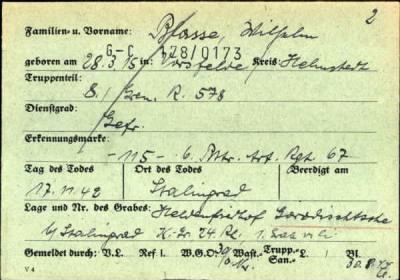 2
Familien- u. Vorname: Blasse, Wilhelm
G-C 178/0173
geboren am 28.3.15 in: Vorsfelde Kreis: Helmstedt
Truppenteil:
8./ Gren. R. 578
Dienstgrad:
Gefr.
Erkennungsmarke:
-115- 6. Bttr. Art. Rgt. 67
Tag des Todes Ort des Todes Beerdigt am
17.11.42 Stalingrad
Lage und Nr. des Grabes: Heldenfriedhof Gorodischtsche
b/ Stalingrad R. 24 1.
Gemeldet durch: V.L. Ref I. W.G.O. Wast- Trupp- San.- L. Bl.
V 4